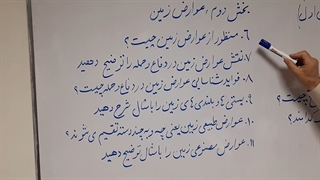 بخش دوم، عوارض زمین
۶. منظور از عوارض زمین چیست؟
۷. نقش عوارض زمین در دفاع و حمله را توضیح دهید
۸. فواید شناسایی عوارض زمین در دفاع و حمله چیست؟
۹. پستی‌ها و بلندی‌های زمین را با مثال شرح دهید
۱۰. عوارض طبیعی زمین یعنی چه و به چند دسته تقسیم می‌شوند؟
۱۱. عوارض مصنوعی زمین را با مثال توضیح دهید
اول)